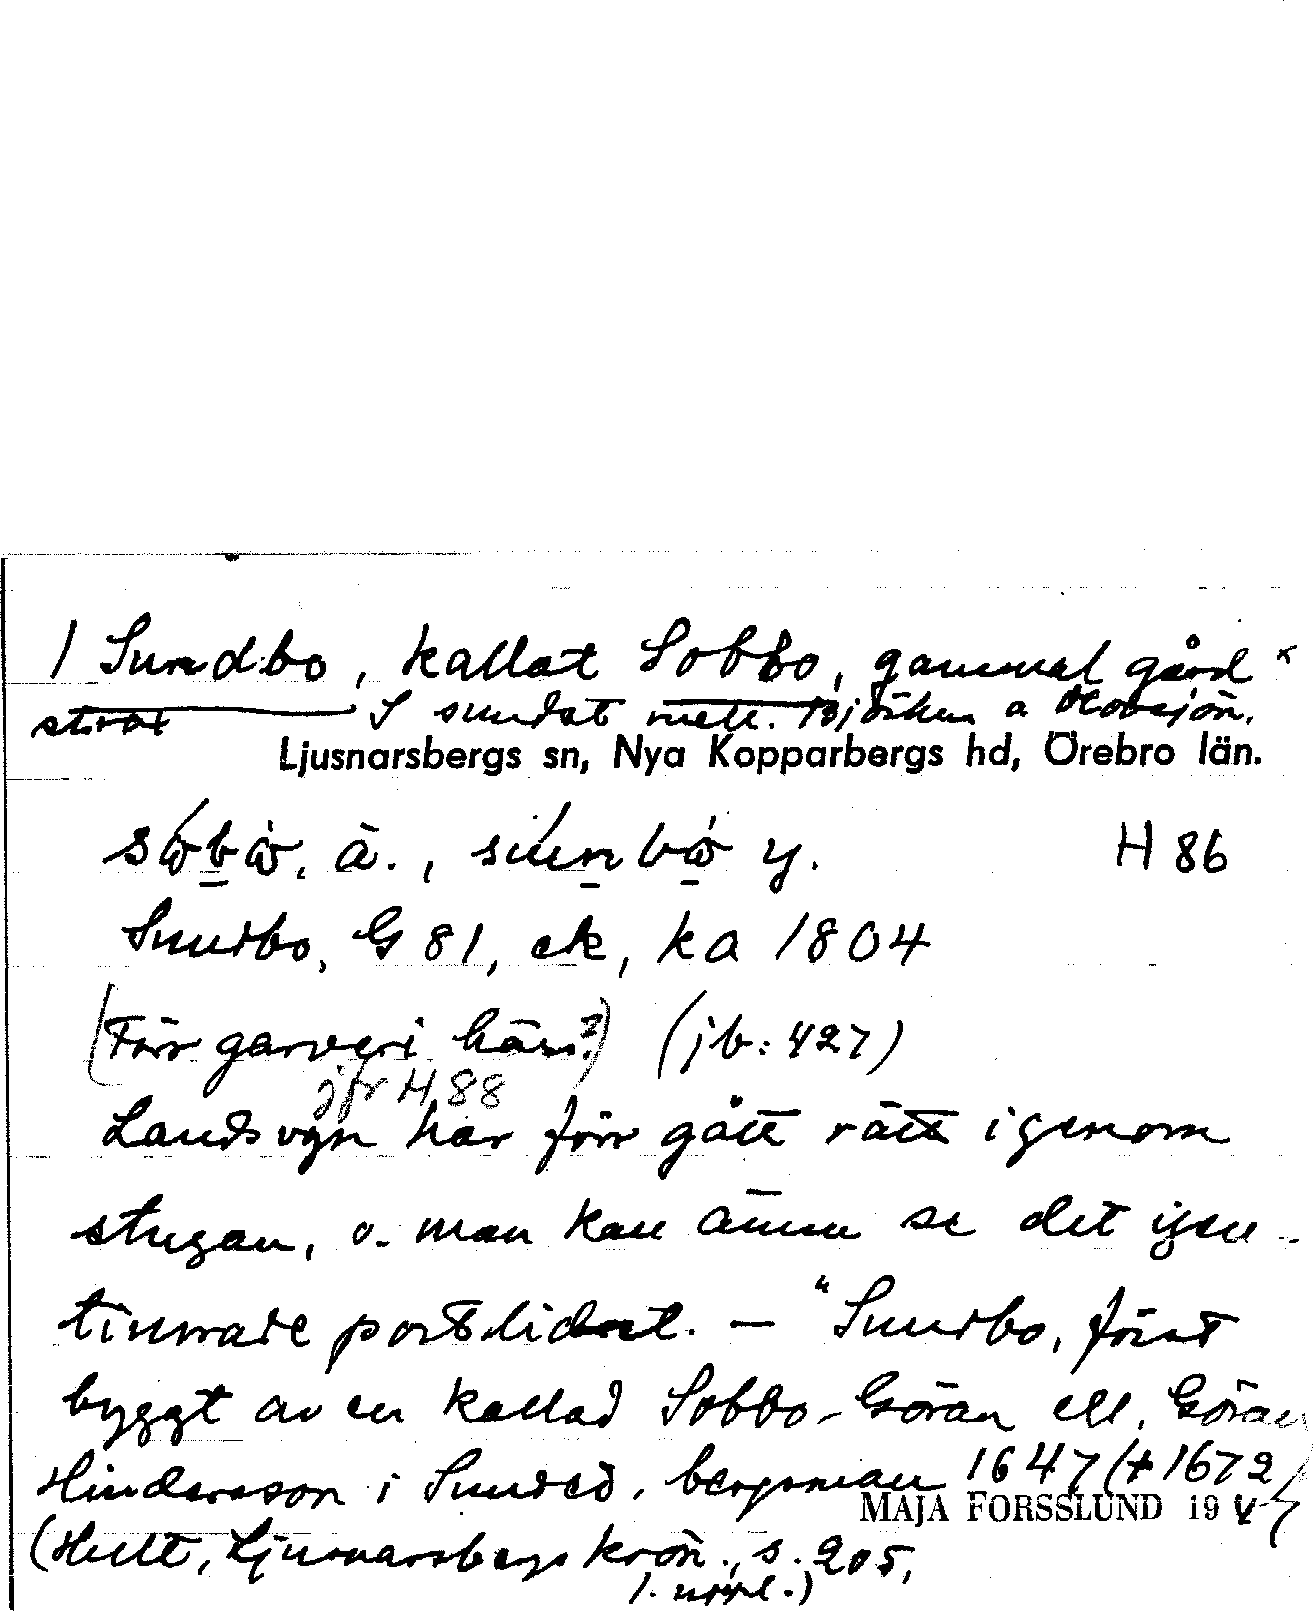 1 Sundbo, kallat Sobbo, gammal gård x
strax I sundet mell. Björken o Olovsjön.
Ljusnarsbergs sn, Nya Kopparbergs hd, Örebro län.
ä., y. H 86
Sundbo, G 81, ek, ka 1804
(Förr garveri här?) (jb: 427)
jfr H 88
Landsvgn har förr gått rätt igenom
stugan, o. man kan ännu se det igen-
timrade portslidret. — "Sundbo, först
byggt av en kallad Sobbo-Göran ell. Göran
Hindersson i Sundbo, bergsman 1647 († 1672)
MAJA FORSSLUND 19
(Hult, Ljusnarsbergs krön., s. 205,
1. uppl.)